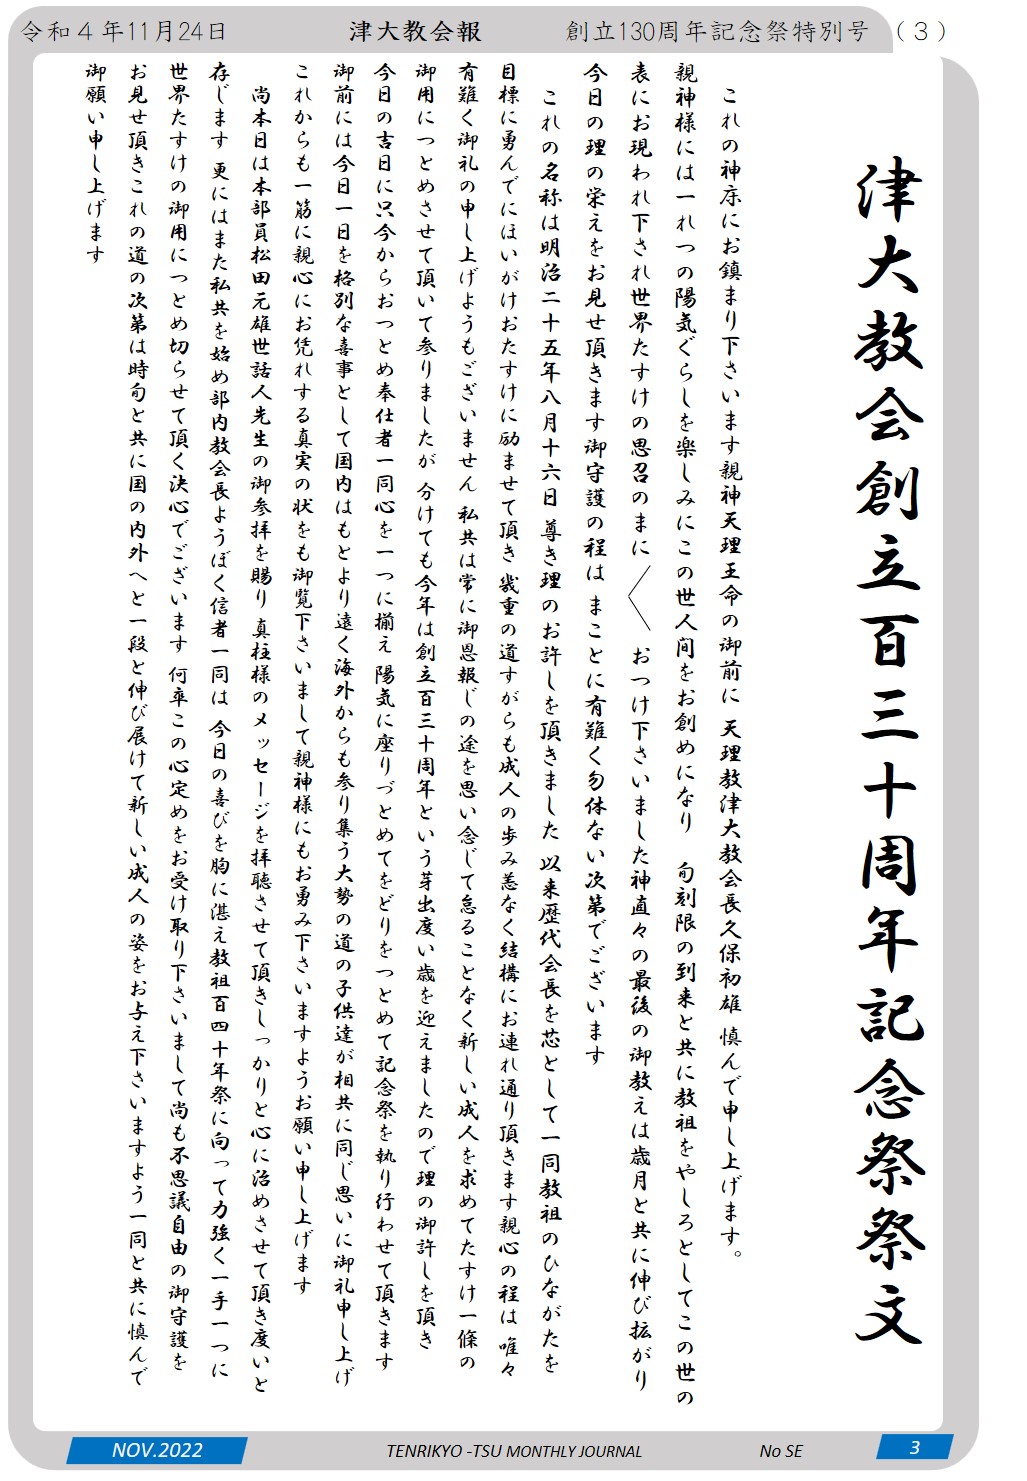 令和４年11月24日　津大教会報　創立130周年記念祭特別号　（３）
津大教会創立百三十周年記念祭祭文
これの神床にお鎮まり下さいます親神天理王命の御前に 天理教津大教会長久保初雄 慎んで申し上げます。
親神様には一れつの陽気ぐらしを楽しみにこの世人間をお創めになり　旬刻限の到来と共に教祖をやしろとしてこの世の
表にお現われ下され世界たすけの思召のまに〱　おつけ下さいました神直々の最後の御教えは歳月と共に伸び拡がり
今日の理の栄えをお見せ頂きます御守護の程は まことに有難く勿体ない次第でございます
これの名称は明治二十五年八月十六日 尊き理のお許しを頂きました 以来歴代会長を芯として一同教祖のひながたを
目標に勇んでにほいがけおたすけに励ませて頂き 幾重の道すがらも成人の歩み恙なく結構にお連れ通り頂きます親心の程は 唯々
有難く御礼の申し上げようもございません 私共は常に御恩報じの途を思い念じて怠ることなく新しい成人を求めてたすけ一條の
御用につとめさせて頂いて参りましたが 分けても今年は創立百三十周年という芽出度い歳を迎えましたので理の御許しを頂き
今日の吉日に只今からおつとめ奉仕者一同心を一つに揃え 陽気に座りづとめてをどりをつとめて記念祭を執り行わせて頂きます
御前には今日一日を格別な喜事として国内はもとより遠く海外からも参り集う大勢の道の子供達が相共に同じ思いに御礼申し上げ
これからも一筋に親心にお凭れする真実の状をも御覧下さいまして親神様にもお勇み下さいますようお願い申し上げます
尚本日は本部員松田元雄世話人先生の御参拝を賜り 真柱様のメッセージを拝聴させて頂きしっかりと心に治めさせて頂き度いと
存じます 更にはまた私共を始め部内教会長ようぼく信者一同は 今日の喜びを胸に湛え教祖百四十年祭に向って力強く一手一つに
世界たすけの御用につとめ切らせて頂く決心でございます 何卒この心定めをお受け取り下さいまして尚も不思議自由の御守護を
お見せ頂きこれの道の次第は時旬と共に国の内外へと一段と伸び展けて新しい成人の姿をお与え下さいますよう一同と共に慎んで
御願い申し上げます
NOV.2022　TENRIKYO -TSU MONTHLY JOURNAL　No SE　3